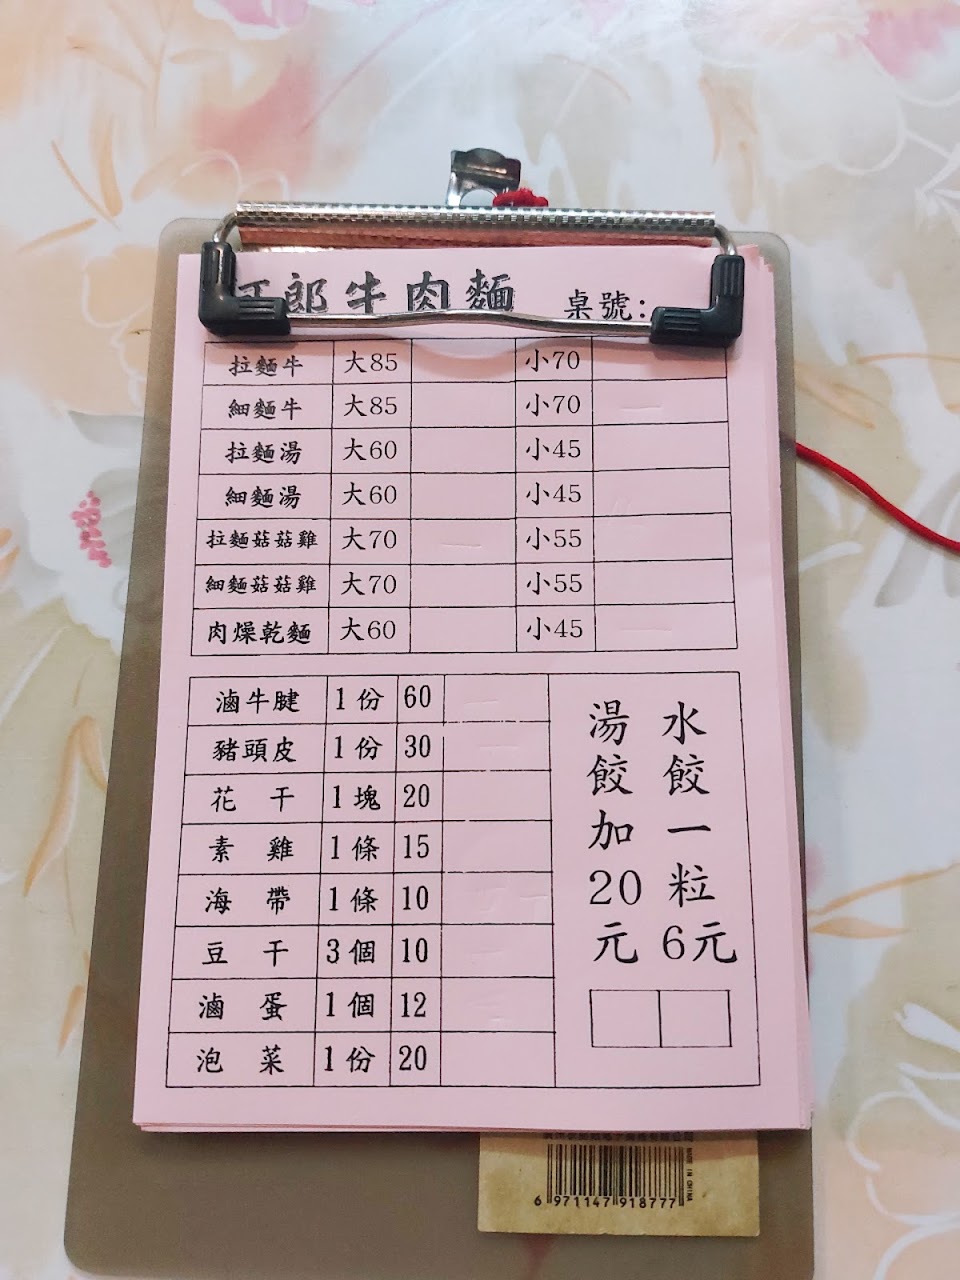 郎牛肉麵 桌號:
拉麵牛 大85 小70
細麵牛 大85 小70
拉麵湯 大60 小45
細麵湯 大60 小45
拉麵菇菇雞 大70 小55
細麵菇菇雞 大70 小55
肉燥乾麵 大60 小45
滷牛腱 1份 60
豬頭皮 1份 30
花干 1塊 20
素雞 1條 15
海帶 1條 10
豆干 3個 10
滷蛋 1個 12
泡菜 1份 20
水餃一粒6元
湯餃加20元
MADE IN CHINA
6 971147 918777